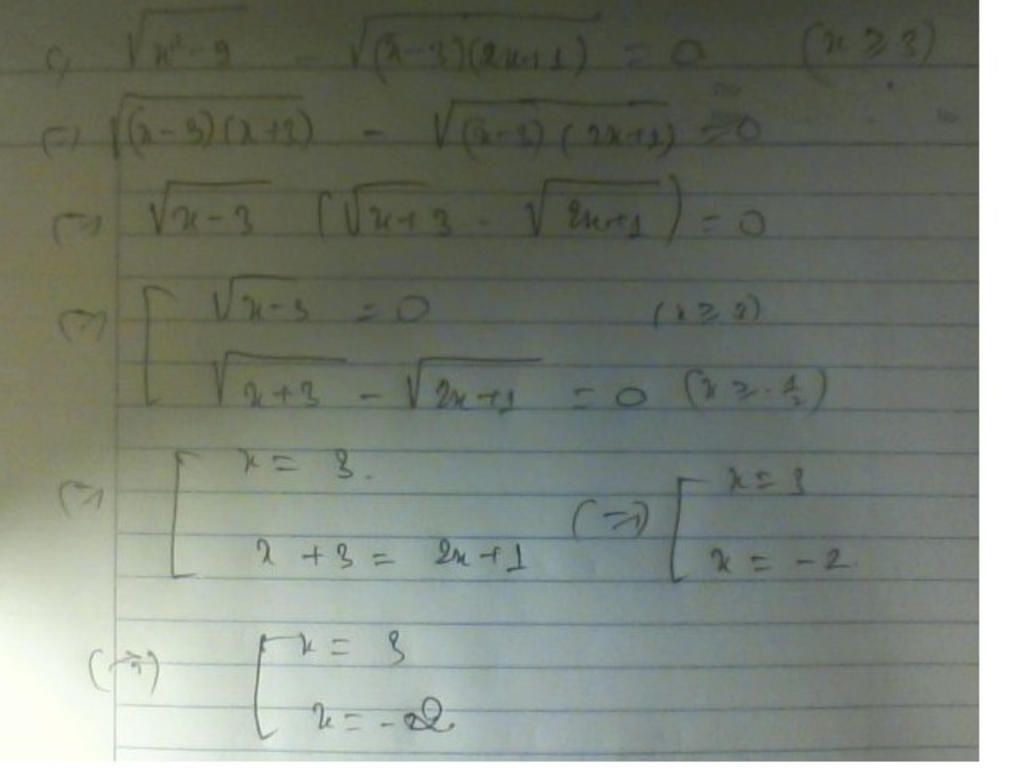 c, √(x²-9) - √((x-3)(2x+1)) = 0 (x ≥ 3)
(=) √((x-3)(x+3)) - √((x-3)(2x+1)) = 0
(=) √(x-3) (√(x+3) - √(2x+1)) = 0
(=) [ √(x-3) = 0 (x ≥ 3)
√(x+3) - √(2x+1) = 0 (x ≥ -1/2)
(=) [ x = 3.
x + 3 = 2x+1 (=) [ x = 3
x = -2
(=) [ x = 3
x = -2